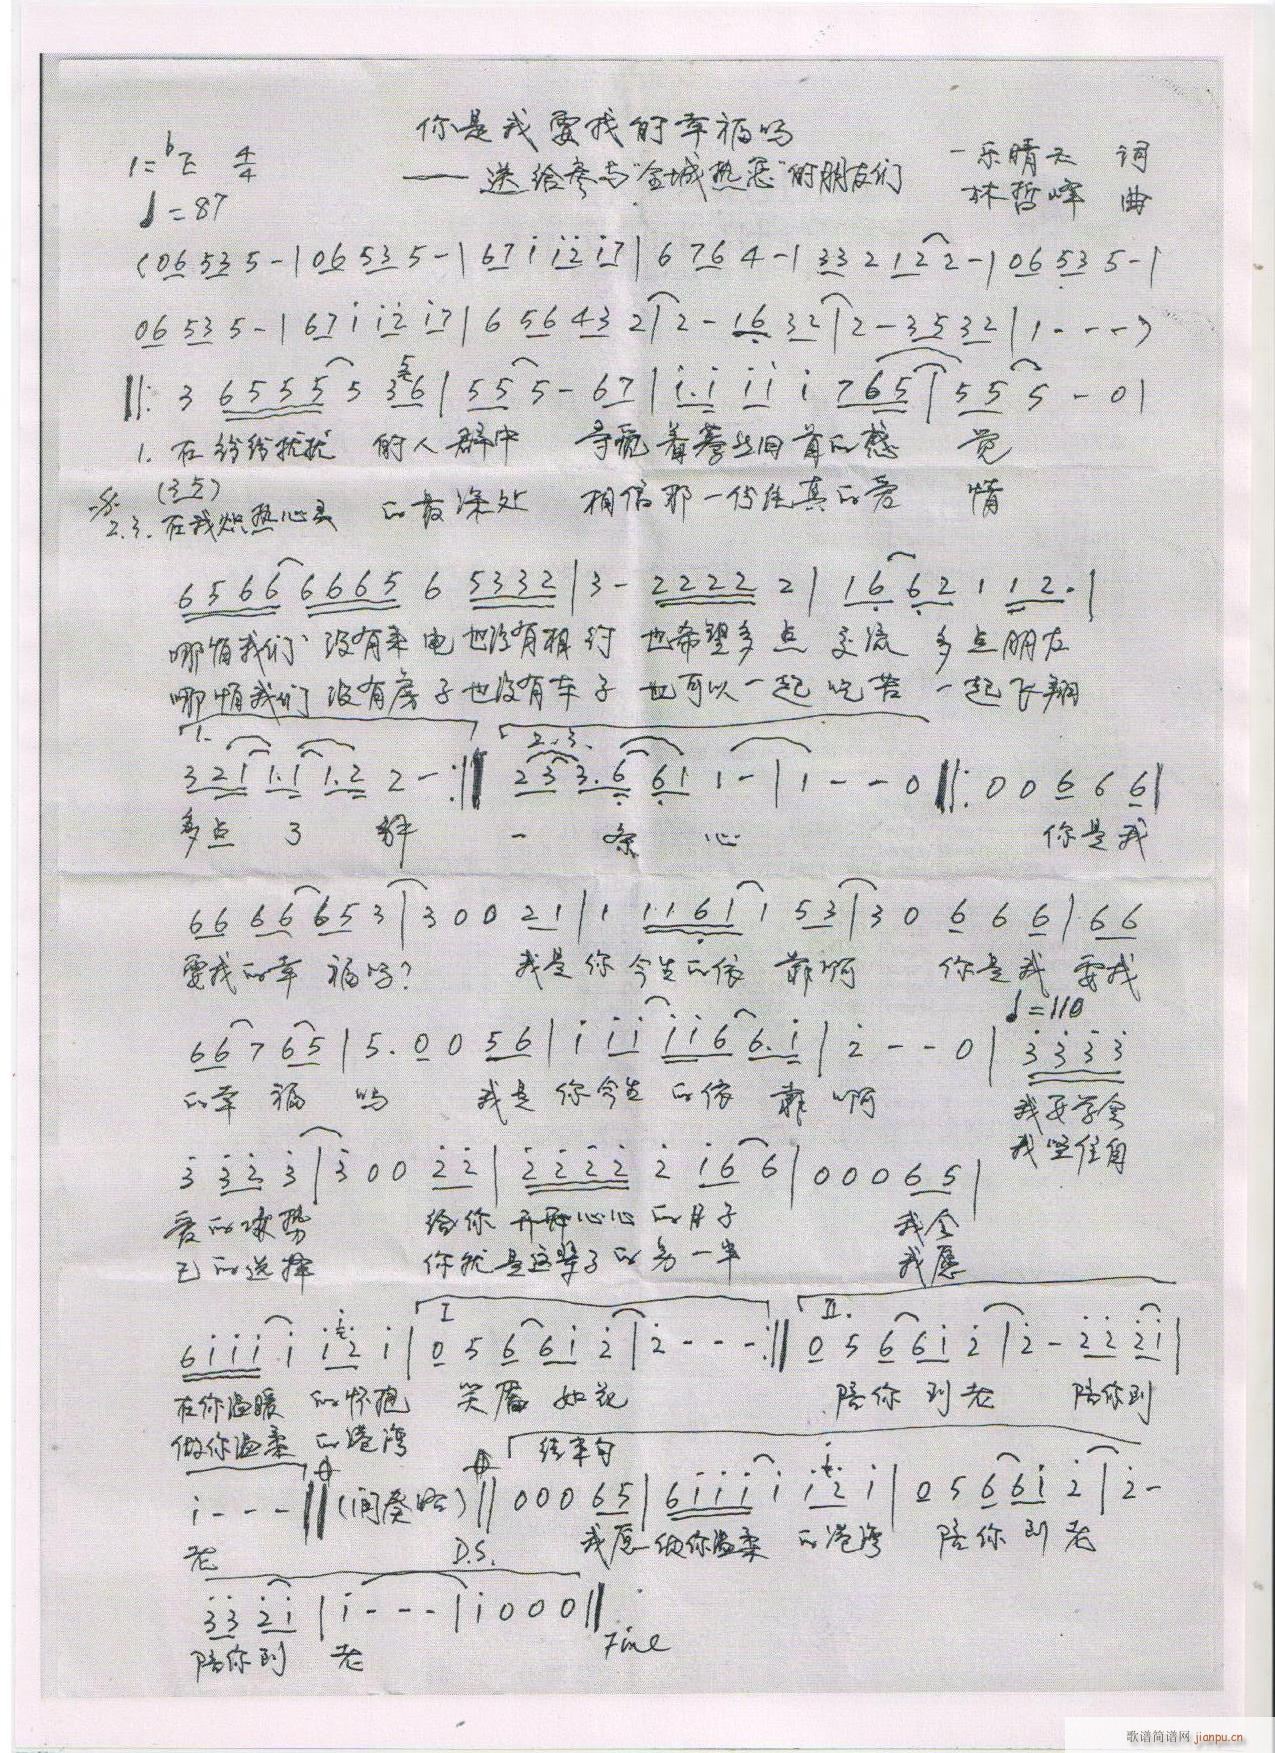 你是我要找的幸福吗
1=bE 4/4
一乐晴天 词
——送给参与"全城热恋"的朋友们
林哲峰 曲
♩=87
(06535-|06535-|671i i2i7|6764-|3321 2 2-|06535-|
06535-|671i i2i7|656432|2-1632|2-3532|1---)
‖:3 6555 5 5 36|55 5-67|i.i ii i 765|55 5-0|
1.在纷纷扰扰 的人群中 寻觅着 的感 觉
(三点)
2.3.在我炽热心灵 的最深处 相信那一份纯真的爱 情
6566 6665 6 5332|3-2222 2|16 62 1 12.|
哪怕我们没有来电也没有相约 也希望多点交流 多点朋友
哪怕我们没有房子也没有车子 也可以一起吃苦 一起飞翔
1. 2.3.
321 1.1 1.2 2-:‖ 23 3.6 61 1-|1--0‖:00666|
多点了解 一条心 你是我
66 66 653|30021|1 1161 1 53|30 666|66
要找的幸福吗? 我是你今生的依靠啊 你是我要找
♩=110
66 7 65|5.0 0 56|i ii ii6 6.i|2--0|3333
的幸福吗 我是你今生的依靠啊 我要学会
我坚信自
3 32 3|30022|2222 2 i6 6|00065|
爱的攻势 给你开开心心的日子 我会
己的选择 你就是这辈子的另一半 我愿
I II.
6iii i i2 i|0 5 6 6i 2|2---:‖0 5 6 6i 2|2-22 2i|
在你温暖的怀抱 笑靥如花 陪你到老 陪你到
做你温柔的港湾
结束句
i---‖(间奏略)‖00065|6iii i i2 i|0 5 6 6i 2|2-
老 D.S. 我愿做你温柔的港湾 陪你到老
33 2i|i---|i000‖
陪你到老 Fine
歌谱简谱网 jianpu.cn